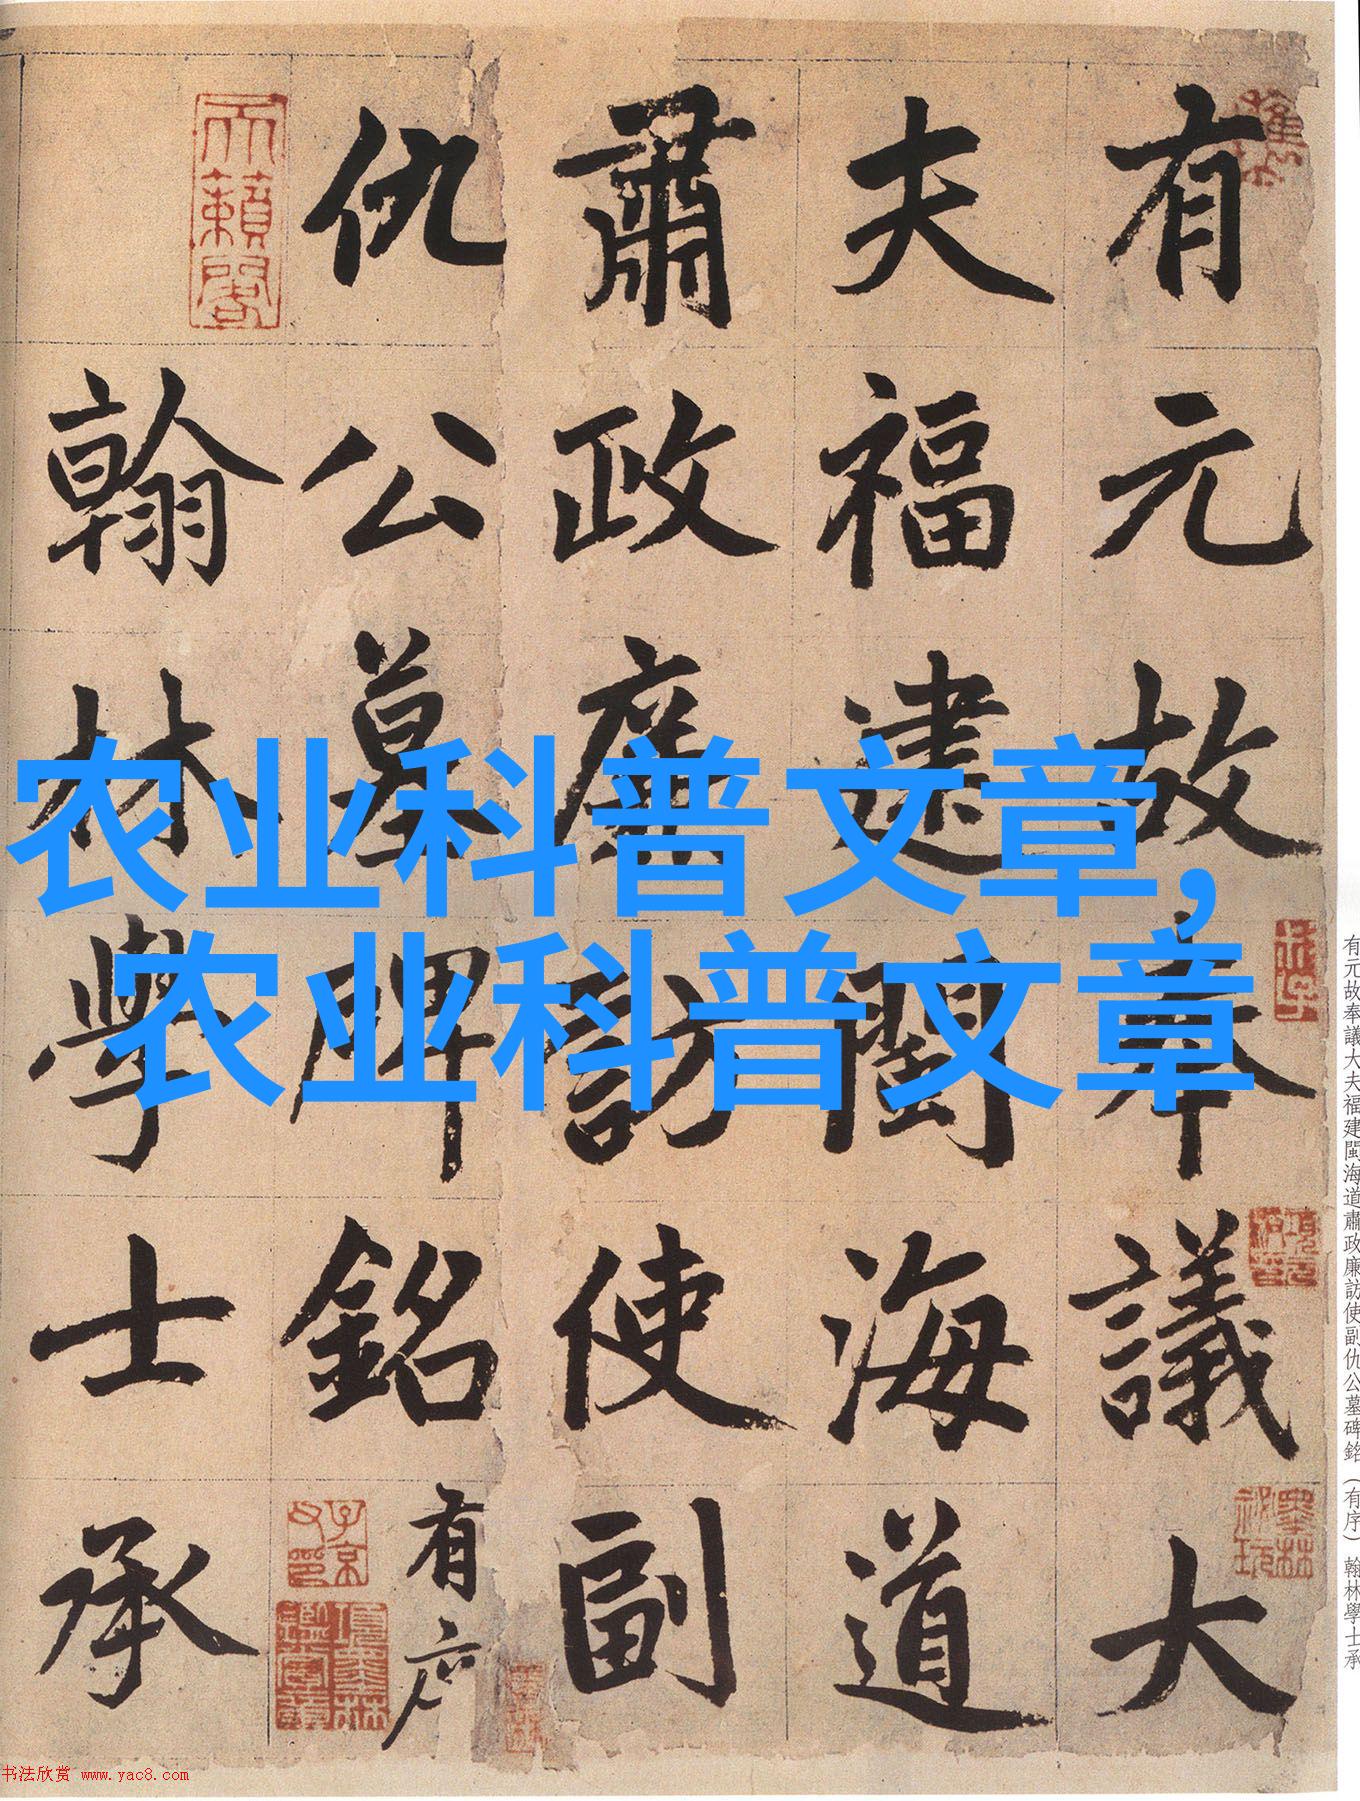 有元故奉議大
夫福建閩海道
肅政廉訪使副
仇公墓碑銘有序
翰林學士承
农业科普文章,
农业科普文章
天籟閣
子京
有元故奉議大夫福建閩海道肅政廉訪使副仇公墓碑銘（有序）翰林學士承
书法欣赏 www.yac8.com